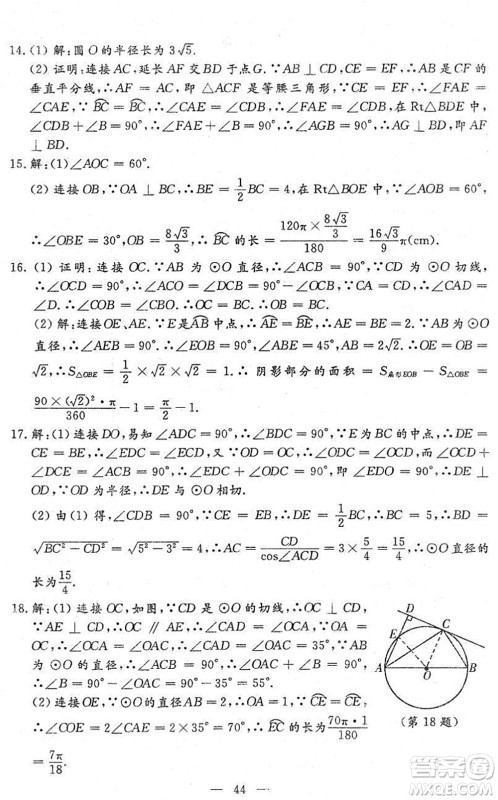 14.(1) 解:圆O的半径长为3√5.
(2) 证明:连接AC,延长AF交BD于点G.∵AB⊥CD,CE=EF,∴AB是CF的
垂直平分线,∴AF=AC,即△ACF是等腰三角形,∵CE=EF,∴∠FAE=
∠CAE,∵BC⌒=BC⌒,∴∠CAE=∠CDB,∴∠FAE=∠CDB,在Rt△BDE中,
∠CDB+∠B=90°,∴∠FAE+∠B=90°,∴∠AGB=90°,∴AF⊥BD.
15.解:(1)∠AOC=60°.
(2) 连接OB,∵OA⊥BC,∴BE=1/2BC=4,在Rt△BOE中,∵∠AOB=60°,
∴∠OBE=30°,OB=8√3/3,∴BC⌒的长=(120π×8√3/3)/180=16√3/9π(cm).
16.(1) 证明:连接OC.∵AB为⊙O直径,∴∠ACB=90°,∵CD为⊙O切线,
∴∠OCD=90°,∴∠ACO=∠DCB=90°-∠OCB,∵CE⊥AB,∴∠CFB=∠A=
∠D.∵OC=OB,∴∠CBO=∠OCB.∴∠ACO=∠DCB.
(2) 解:连接OE、AE.∵E是AB⌒中点,∴AE⌒=BE⌒,∴AE=BE,∵AB为⊙O
直径,∴∠AEB=90°,∴∠ABE=∠BAE=45°,∵AB=2√2,∴OE=OB=
√2,∴S△OBE=1/2×√2×√2=1,∴阴影部分的面积=S扇形EOB-S△OBE=
90×(√2)²·π/360-1=π/2-1.
17.解:(1) 连接DO,易知∠ADC=90°,∴∠BDC=90°,∵E为BC的中点,∴DE=
CE=BE,∴∠EDC=∠ECD,又∵OD=OC,∴∠ODC=∠OCD,而∠OCD+
∠DCE=∠ACB=90°,∴∠EDC+∠ODC=90°,即∠EDO=90°,∴DE⊥
OD,∵OD为半径,∴DE与⊙O相切.
(2) 由(1)得,∠CDB=90°,∵CE=EB,∴DE=1/2BC,∴BC=5,∴BD=
√(BC²-CD²)=√(5²-3²)=4,∴AC=CD/cos∠ACD=3×5/4=15/4,∴⊙O的直径的
长为15/4.
18.解:(1) 连接OC,如图,∵CD是⊙O的切线,∴OC⊥
CD,∵AE⊥CD,∴OC∥AE,∴∠CAD=∠OCA,
∵OA=OC,∴∠OCA=∠OAC=∠CAD=35°,∵AB
为⊙O的直径,∴∠ACB=90°,∴∠B+∠OAC=
90°,∴∠B=90°-∠OAC=90°-35°=55°.
(2) 连接OE,∵⊙O的直径AB=2,∴OA=1,∵CE⌒=CE⌒,
∴∠COE=2∠CAE=2×35°=70°,∴EC⌒的长=70π·1/180
=7π/18.
D
C
E
A
O
B
(第18题)
44